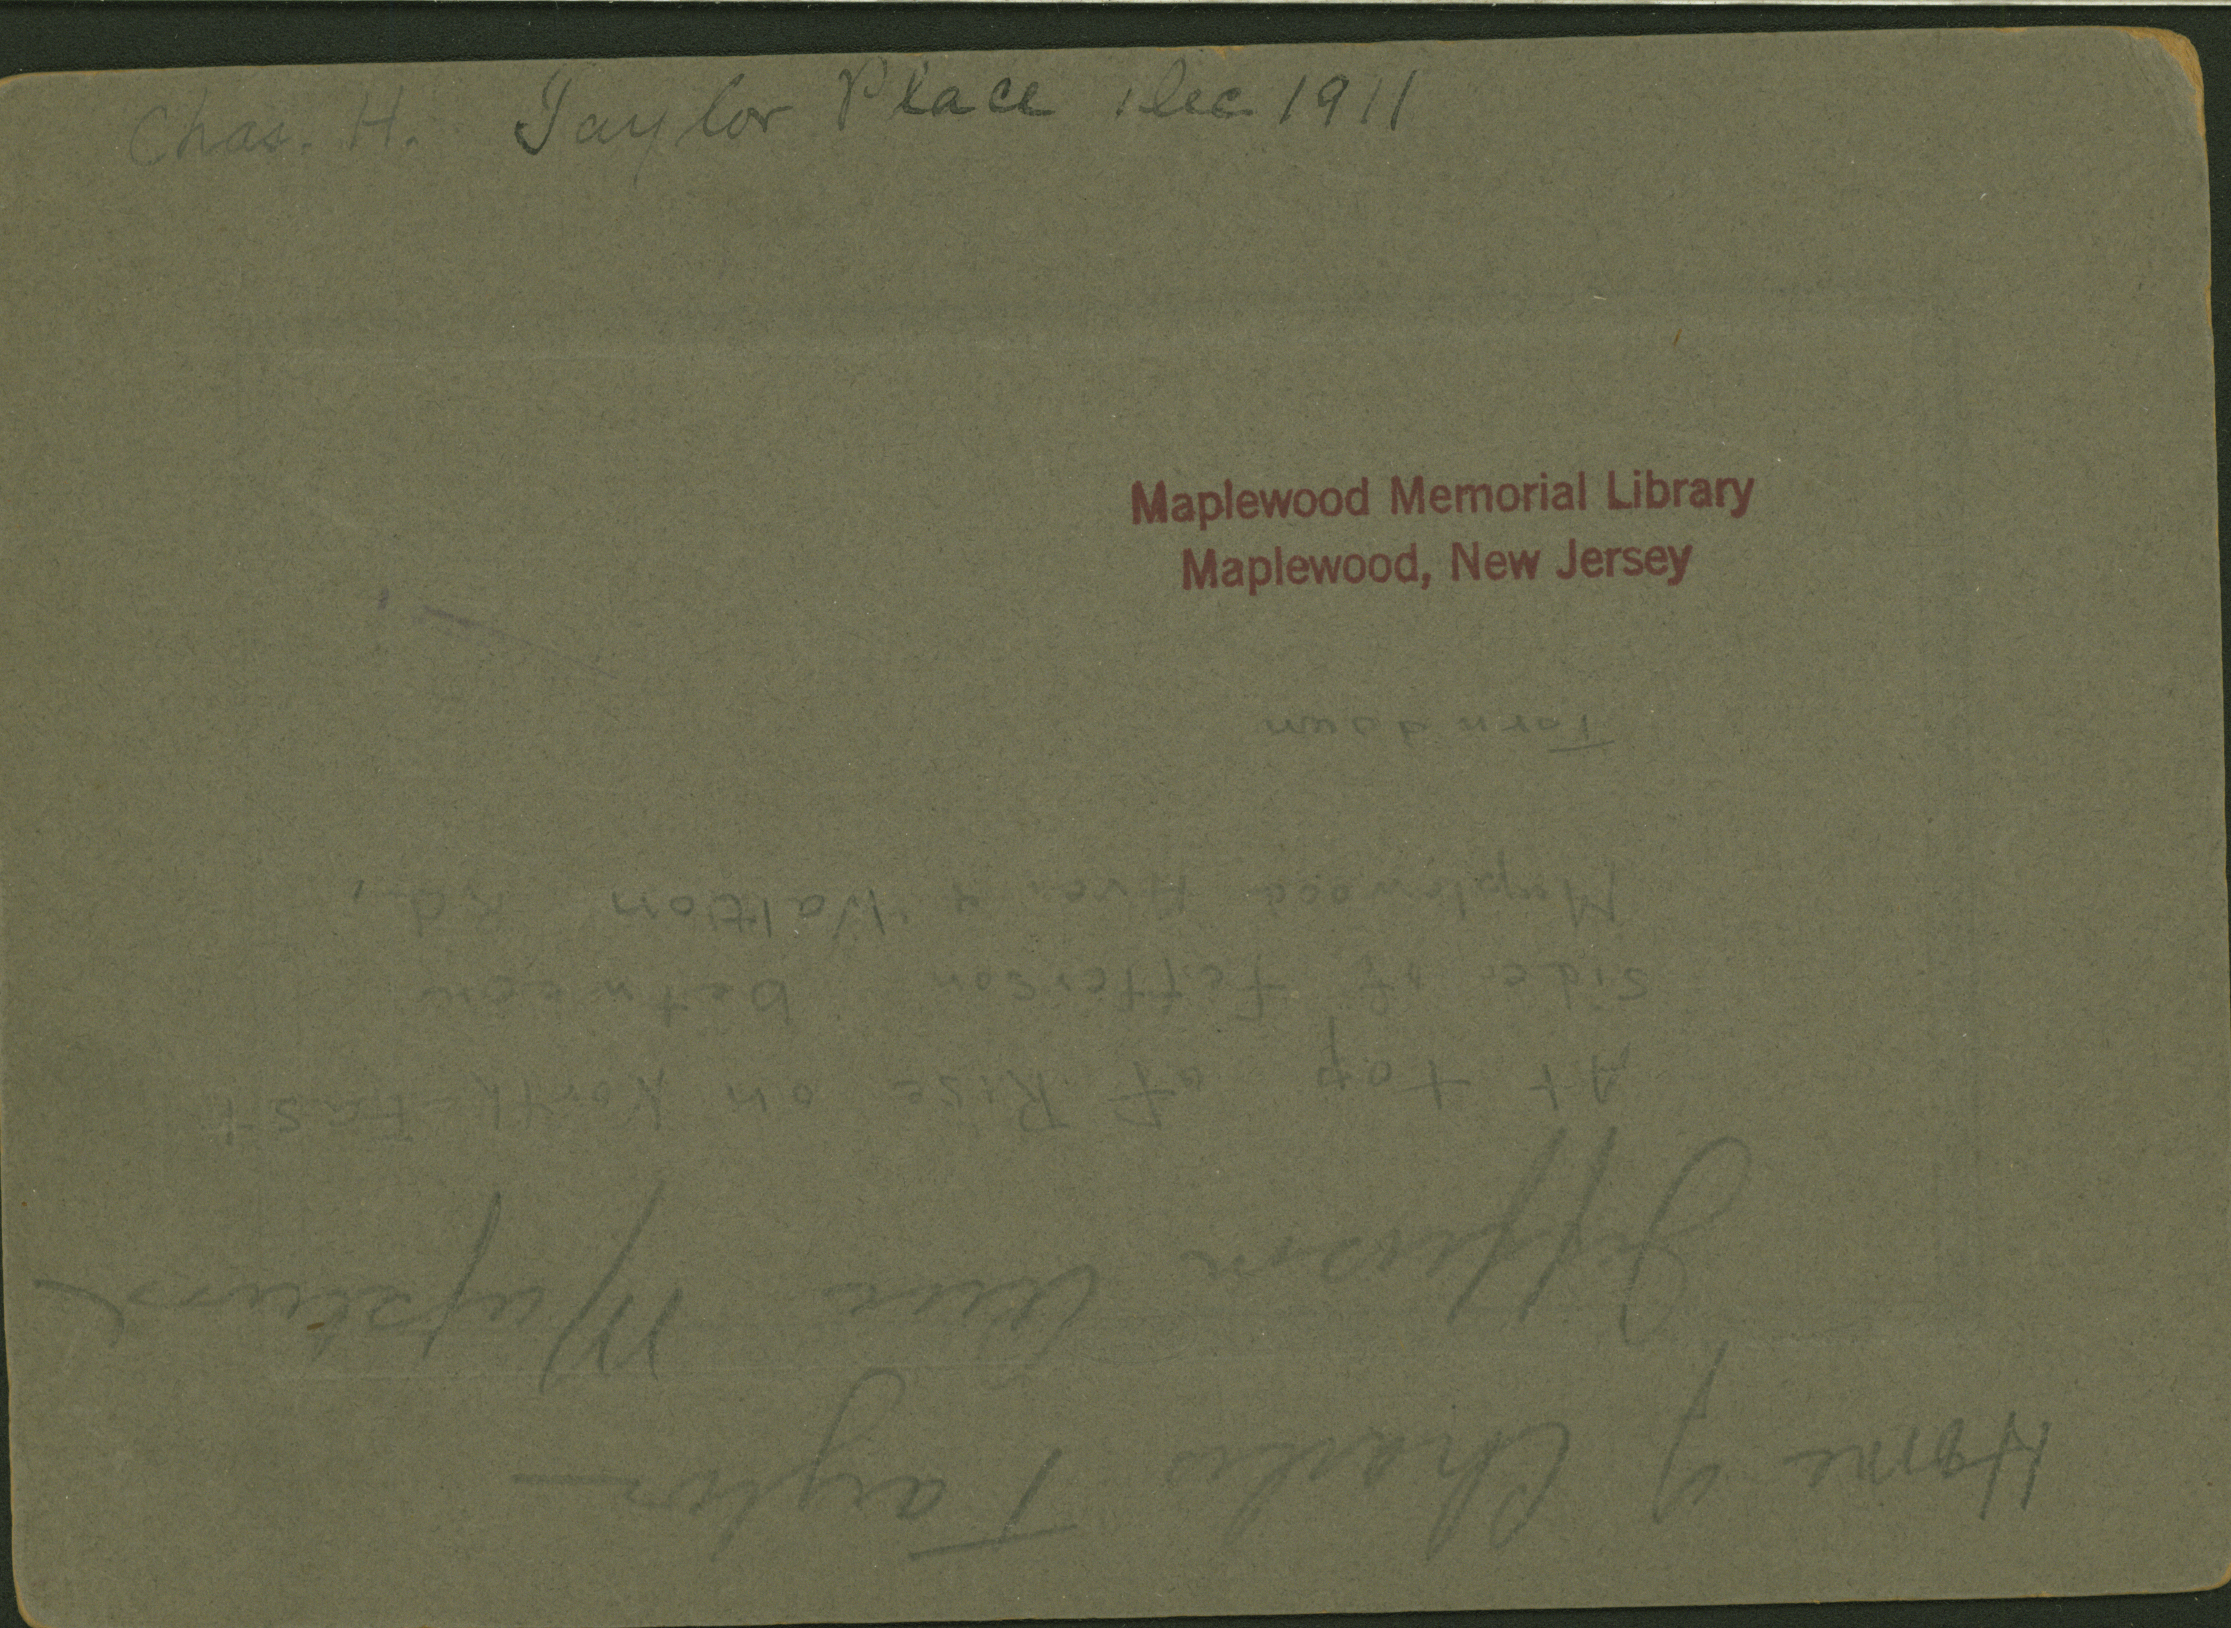 Chas. H. Taylor Place Dec 1911
Maplewood Memorial Library
Maplewood, New Jersey
Home of Charles Taylor
Jefferson Ave Maplewood
At top of Rise on North-East
side of Jefferson between
Maplewood Ave. & Walton Rd.
Torn down